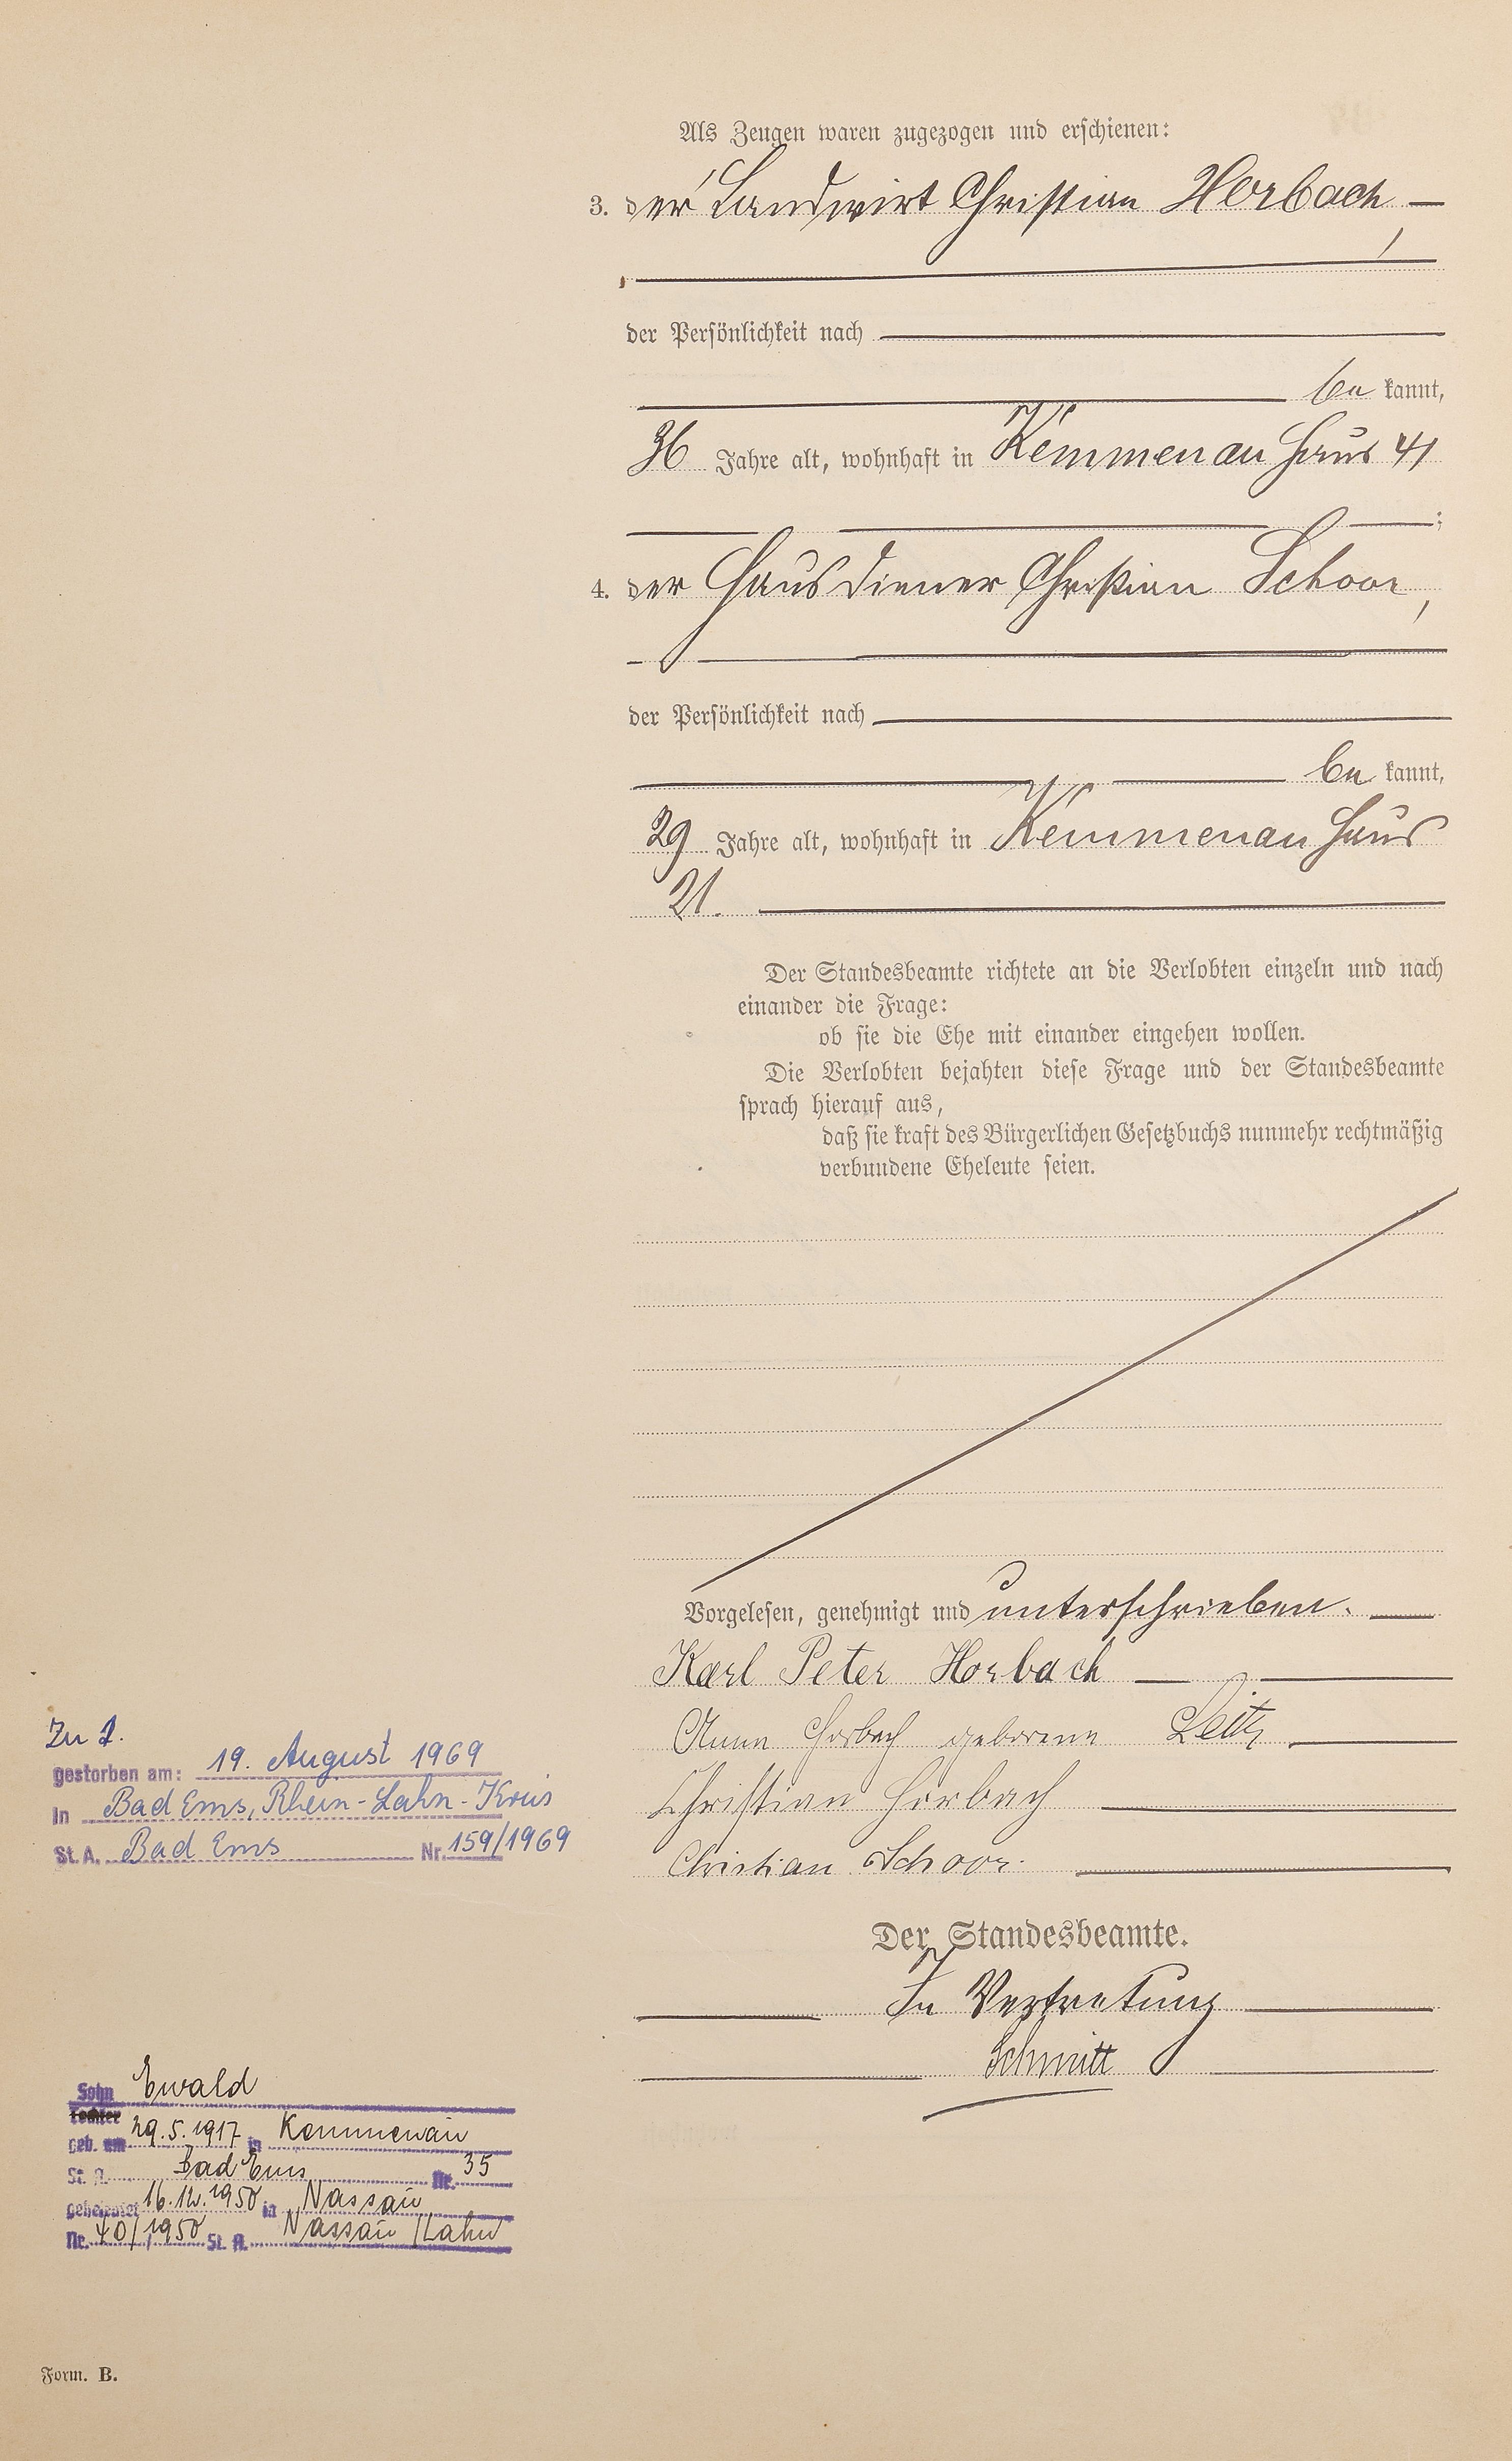 Als Zeugen waren zugezogen und erschienen:
3. der Landwirt Christian Horbach,
der Persönlichkeit nach
be kannt,
36 Jahre alt, wohnhaft in Kemmenau Haus 41
;
4. der Hausdiener Christian Schoor,
der Persönlichkeit nach
be kannt,
29 Jahre alt, wohnhaft in Kemmenau Haus
21.
Der Standesbeamte richtete an die Verlobten einzeln und nach
einander die Frage:
ob sie die Ehe mit einander eingehen wollen.
Die Verlobten bejahten diese Frage und der Standesbeamte
sprach hierauf aus,
daß sie kraft des Bürgerlichen Gesetzbuchs nunmehr rechtmäßig
verbundene Eheleute seien.
Vorgelesen, genehmigt und unterschrieben.
Karl Peter Horbach
Anna Horbach geborene Leitz
Christian Horbach
Christian Schoor.
Der Standesbeamte.
In Vertretung
Schmitt
Zu
gestorben am: 19. August 1969
in Bad Ems, Rhein-Lahn-Kreis
St. A. Bad Ems Nr. 159/1969
Sohn Ewald
Tochter
geb. am 29.5.1917 in Kemmenau
St. A. Bad Ems Nr. 35
geheiratet 16.12.1950 in Nassau
Nr. 40/1950 St. A. Nassau/Lahn
Form. B.